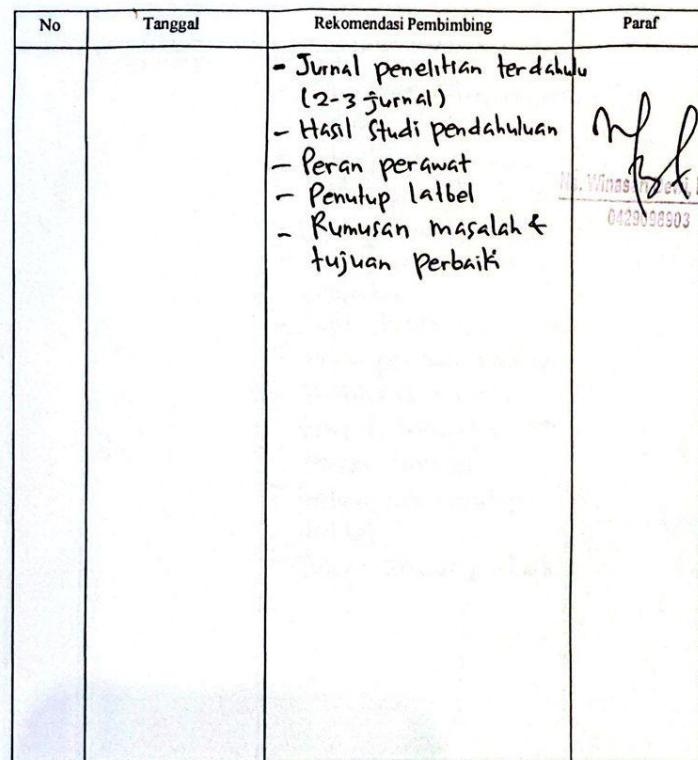 No Tanggal Rekomendasi Pembimbing Paraf
- Jurnal penelitian terdahulu
(2-3 jurnal)
- Hasil Studi pendahuluan
- Peran perawat
- Penutup latbel
- Rumusan masalah &
tujuan perbaiki
0429098903